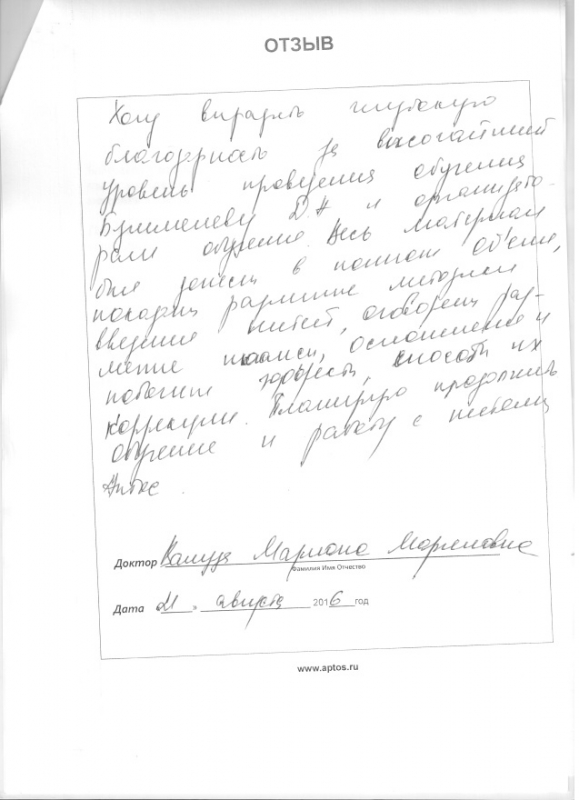 ОТЗЫВ
Хочу выразить глубокую
благодарность за высочайший
уровень проведения обучения
и организато-
рам обучения. Весь материал
был в полном объеме,
показаны различные методики
введения нитей, оговорены раз-
личные нюансы, осложнения и
побочные эффекты, способы их
коррекции. Планирую продолжить
обучение и работу с нитями
Аптос.
Доктор Мариана
Фамилия Имя Отчество
Дата 21 " августа 2016 год
www.aptos.ru